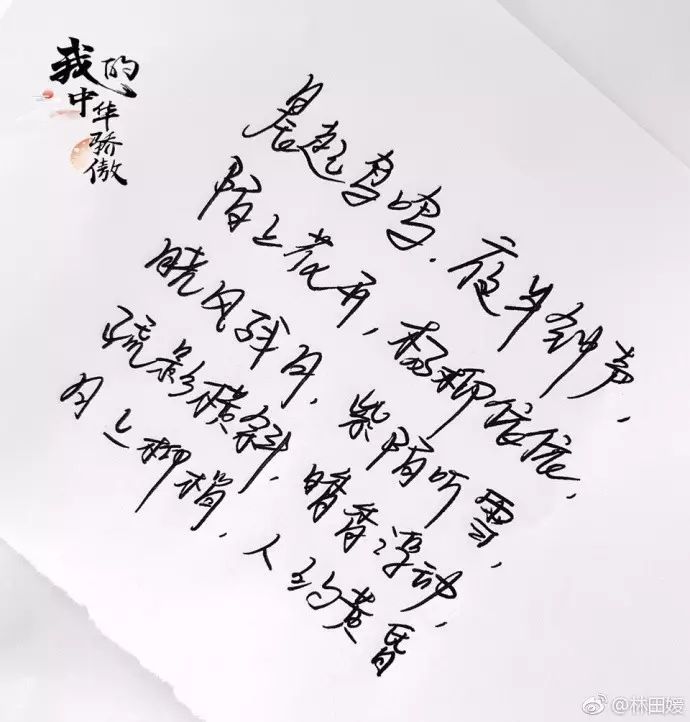 我的
中华骄傲
晨起鸟鸣，夜半钟声，
陌上花开，杨柳依依，
晓风残月，紫陌听雪，
疏影横斜，暗香浮动，
月上柳梢，人约黄昏
@林田媛